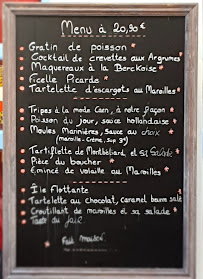 Menu à 20,90 €
Gratin de poisson
Cocktail de crevettes aux Agrumes
Maquereaux à la Berckoise
Ficelle Picarde
Tartelette d'escargots au Maroilles
Tripes à la mode Caen, à notre façon
Poisson du jour, sauce hollandaise
Moules Marinières, Sauce au choix
(maroille - Crème, Sup 3€)
Tartiflette de Montbéliard, et sa Salade
Pièce du boucher
Emincé de volaille au Maroilles
Île flottante
Tartelette au chocolat, caramel beurre salé
Croustillant de maroilles et sa salade
Tarte du jour
Fait maison